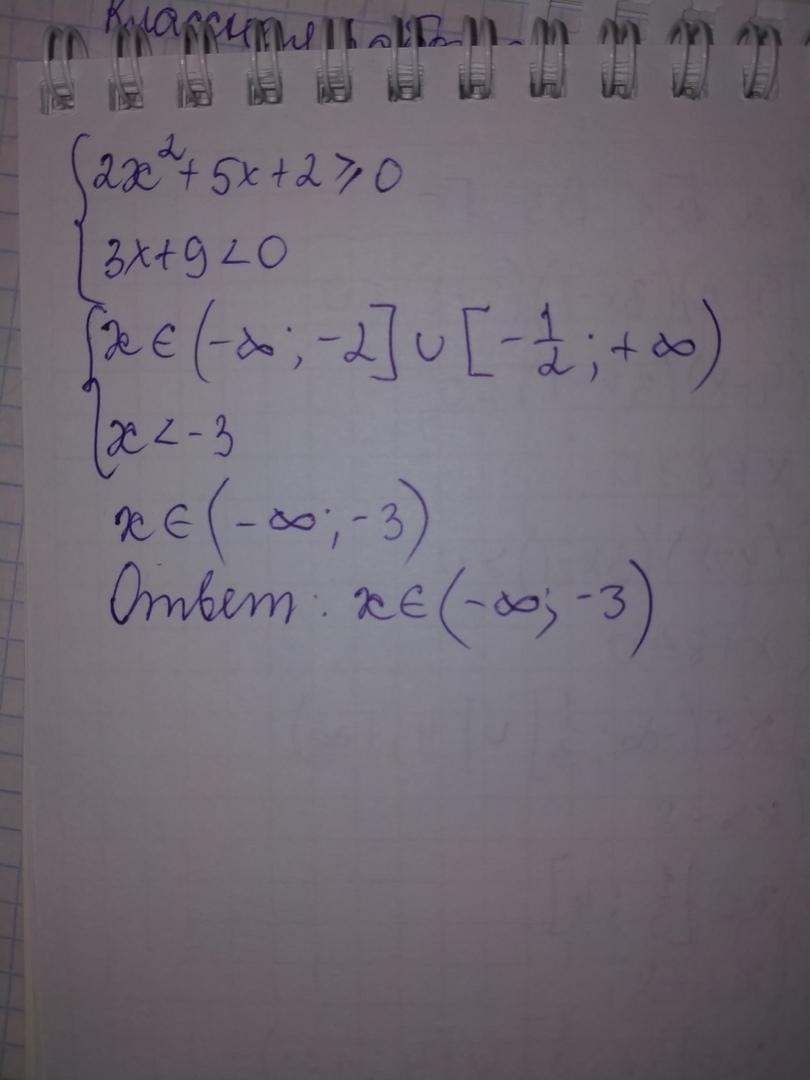 2x² + 5x + 2 ⩾ 0
3x + 9 < 0
x ∈ (-∞; -2] ∪ [-1/2; +∞)
x < -3
x ∈ (-∞; -3)
Ответ: x ∈ (-∞; -3)